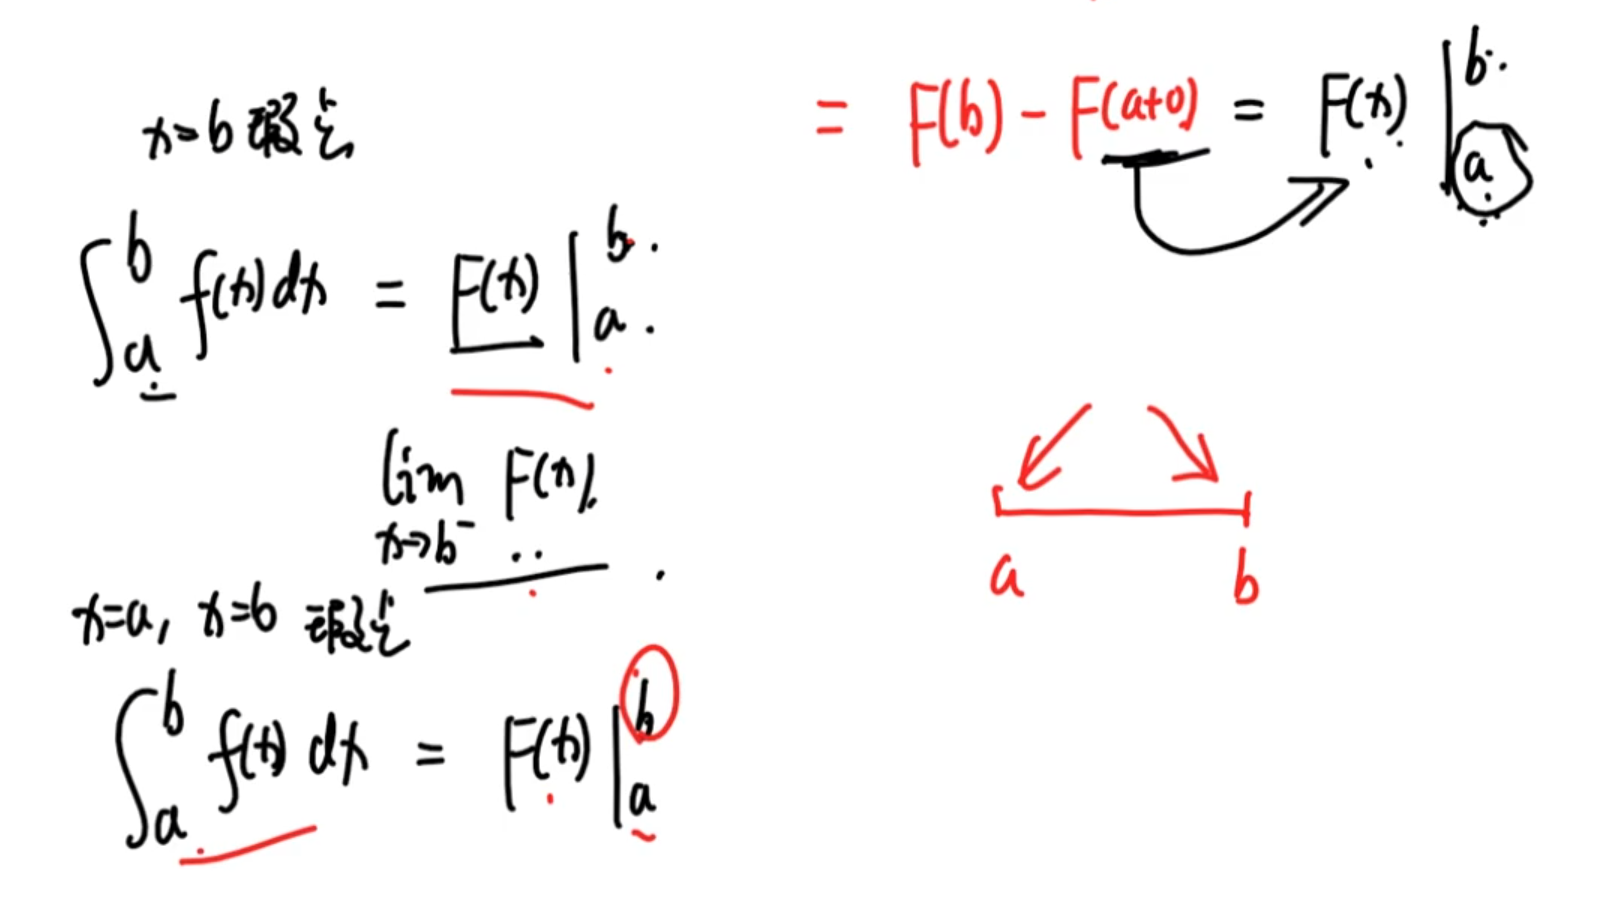 x=b 瑕点
∫_a^b f(x)dx = F(x)|_a^b
lim_{x→b⁻} F(x).
x=a, x=b 瑕点
∫_a^b f(x)dx = F(x)|_a^b
= F(b) - F(a+0) = F(x)|_a^b
a b